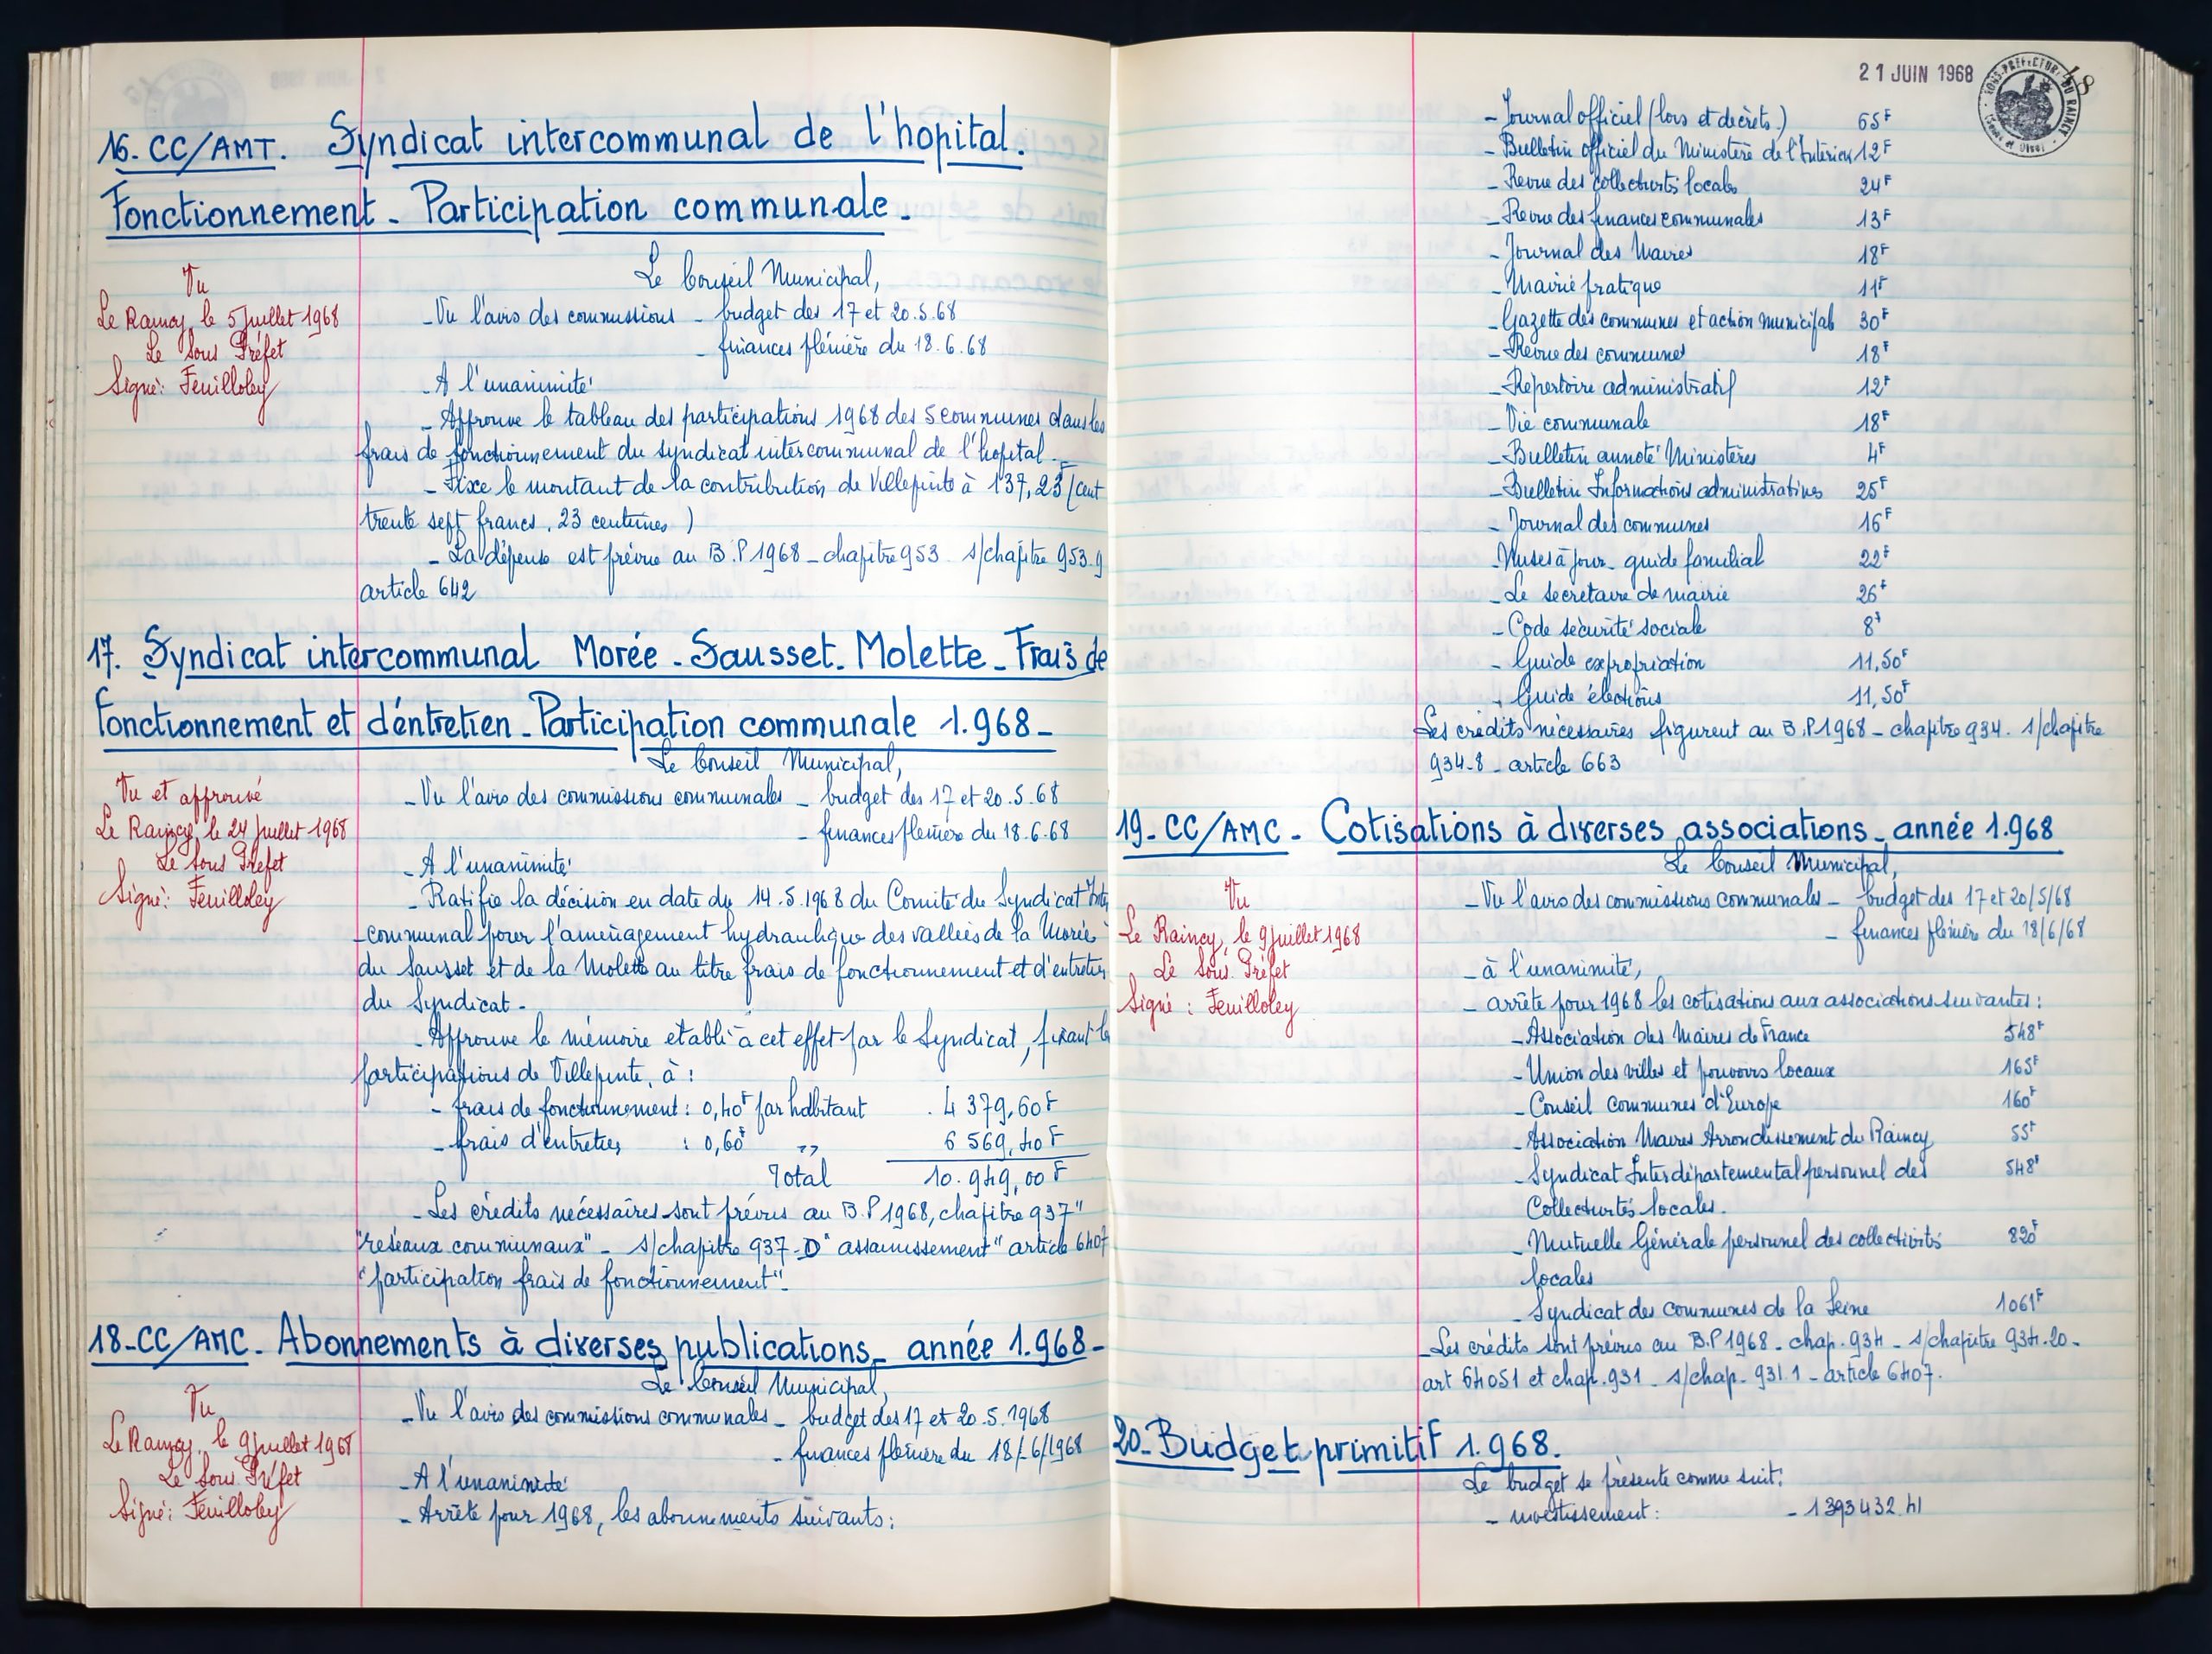 16. CC/AMT. Syndicat intercommunal de l'hopital.
Fonctionnement - Participation communale -
Vu
Le Raincy, le 5 Juillet 1968
Le Sous Préfet
Signé: Feuilloley
Le Conseil Municipal,
- Vu l'avis des commissions - budget des 17 et 20.5.68
- finances plénière du 18.6.68
- A l'unanimité
- Approuve le tableau des participations 1968 des 5 communes dans les
frais de fonctionnement du syndicat intercommunal de l'hopital -
- Fixe le montant de la contribution de Villepinte à 137,23F (cent
trente sept francs. 23 centimes )
- La dépense est prévue au B.P 1968 - chapitre 953 s/chapitre 953.9
article 642
17. Syndicat intercommunal Morée - Sausset - Molette - Frais de
fonctionnement et d'entretien - Participation communale 1.968 -
Vu et approuvé
Le Raincy, le 24 Juillet 1968
Le Sous Préfet
Signé: Feuilloley
Le Conseil Municipal,
- Vu l'avis des commissions communales - budget des 17 et 20.5.68
- finances plénière du 18.6.68
- A l'unanimité
- Ratifie la décision en date du 14.5.1968 du Comité du Syndicat Inter
- communal pour l'aménagement hydraulique des vallées de la Morée
du Sausset et de la Molette au titre frais de fonctionnement et d'entretien
du Syndicat -
- Approuve le mémoire établi à cet effet par le Syndicat, fixant les
participations de Villepinte, à :
- frais de fonctionnement : 0,40F par habitant 4 379,60F
- frais d'entretien : 0,60F " 6 569,40F
Total 10.949,00F
- Les crédits nécessaires sont prévus au B.P 1968, chapitre 937"
"réseaux communaux" - s/chapitre 937-D "assainissement" article 6407
"participation frais de fonctionnement" -
18 - CC/AMC - Abonnements à diverses publications - année 1.968 -
Vu
Le Raincy, le 9 Juillet 1968
Le Sous Préfet
Signé: Feuilloley
Le Conseil Municipal,
- Vu l'avis des commissions communales - budget des 17 et 20.5.1968
- finances plénière du 18/6/1968
- A l'unanimité
- Arrête pour 1968, les abonnements suivants :
21 JUIN 1968
SOUS-PRÉFECTURE DU RAINCY
48
- Journal officiel (lois et décrets.) 65F
- Bulletin officiel du Ministère de l'Intérieur 12F
- Revue des collectivités locales 24F
- Revue des finances communales 13F
- Journal des Maires 18F
- Mairie pratique 11F
- Gazette des communes et action municipale 30F
- Revue des communes 18F
- Répertoire administratif 12F
- Vie communale 18F
- Bulletin annoté Ministères 4F
- Bulletin Informations administratives 25F
- Journal des communes 16F
- Mises à jour - guide familial 22F
- Le secrétaire de mairie 26F
- Code sécurité sociale 8F
- Guide expropriation 11,50F
- Guide élections 11,50F
Les crédits nécessaires figurent au B.P 1968 - chapitre 934. s/chapitre
934-8 - article 663
19 - CC/AMC - Cotisations à diverses associations - année 1.968
Vu
Le Raincy, le 9 Juillet 1968
Le Sous Préfet
Signé : Feuilloley
Le Conseil Municipal,
- Vu l'avis des commissions communales - budget des 17 et 20/5/68
- finances plénière du 18/6/68
- à l'unanimité,
- arrête pour 1968 les cotisations aux associations suivantes :
- Association des Maires de France 548F
- Union des villes et pouvoirs locaux 165F
- Conseil Communes d'Europe 160F
- Association Maires Arrondissement du Raincy 55F
- Syndicat Interdépartemental personnel des 548F
Collectivités locales.
- Mutuelle Générale personnel des collectivités 820F
locales
- Syndicat des communes de la Seine 1061F
- Les crédits sont prévus au B.P 1968 - chap. 934 - s/chapitre 934.20 -
art 64051 et chap. 931 - s/chap - 931.1 - article 6407.
20 - Budget primitif 1.968.
Le budget se présente comme suit:
- investissement : - 1 393 432.41